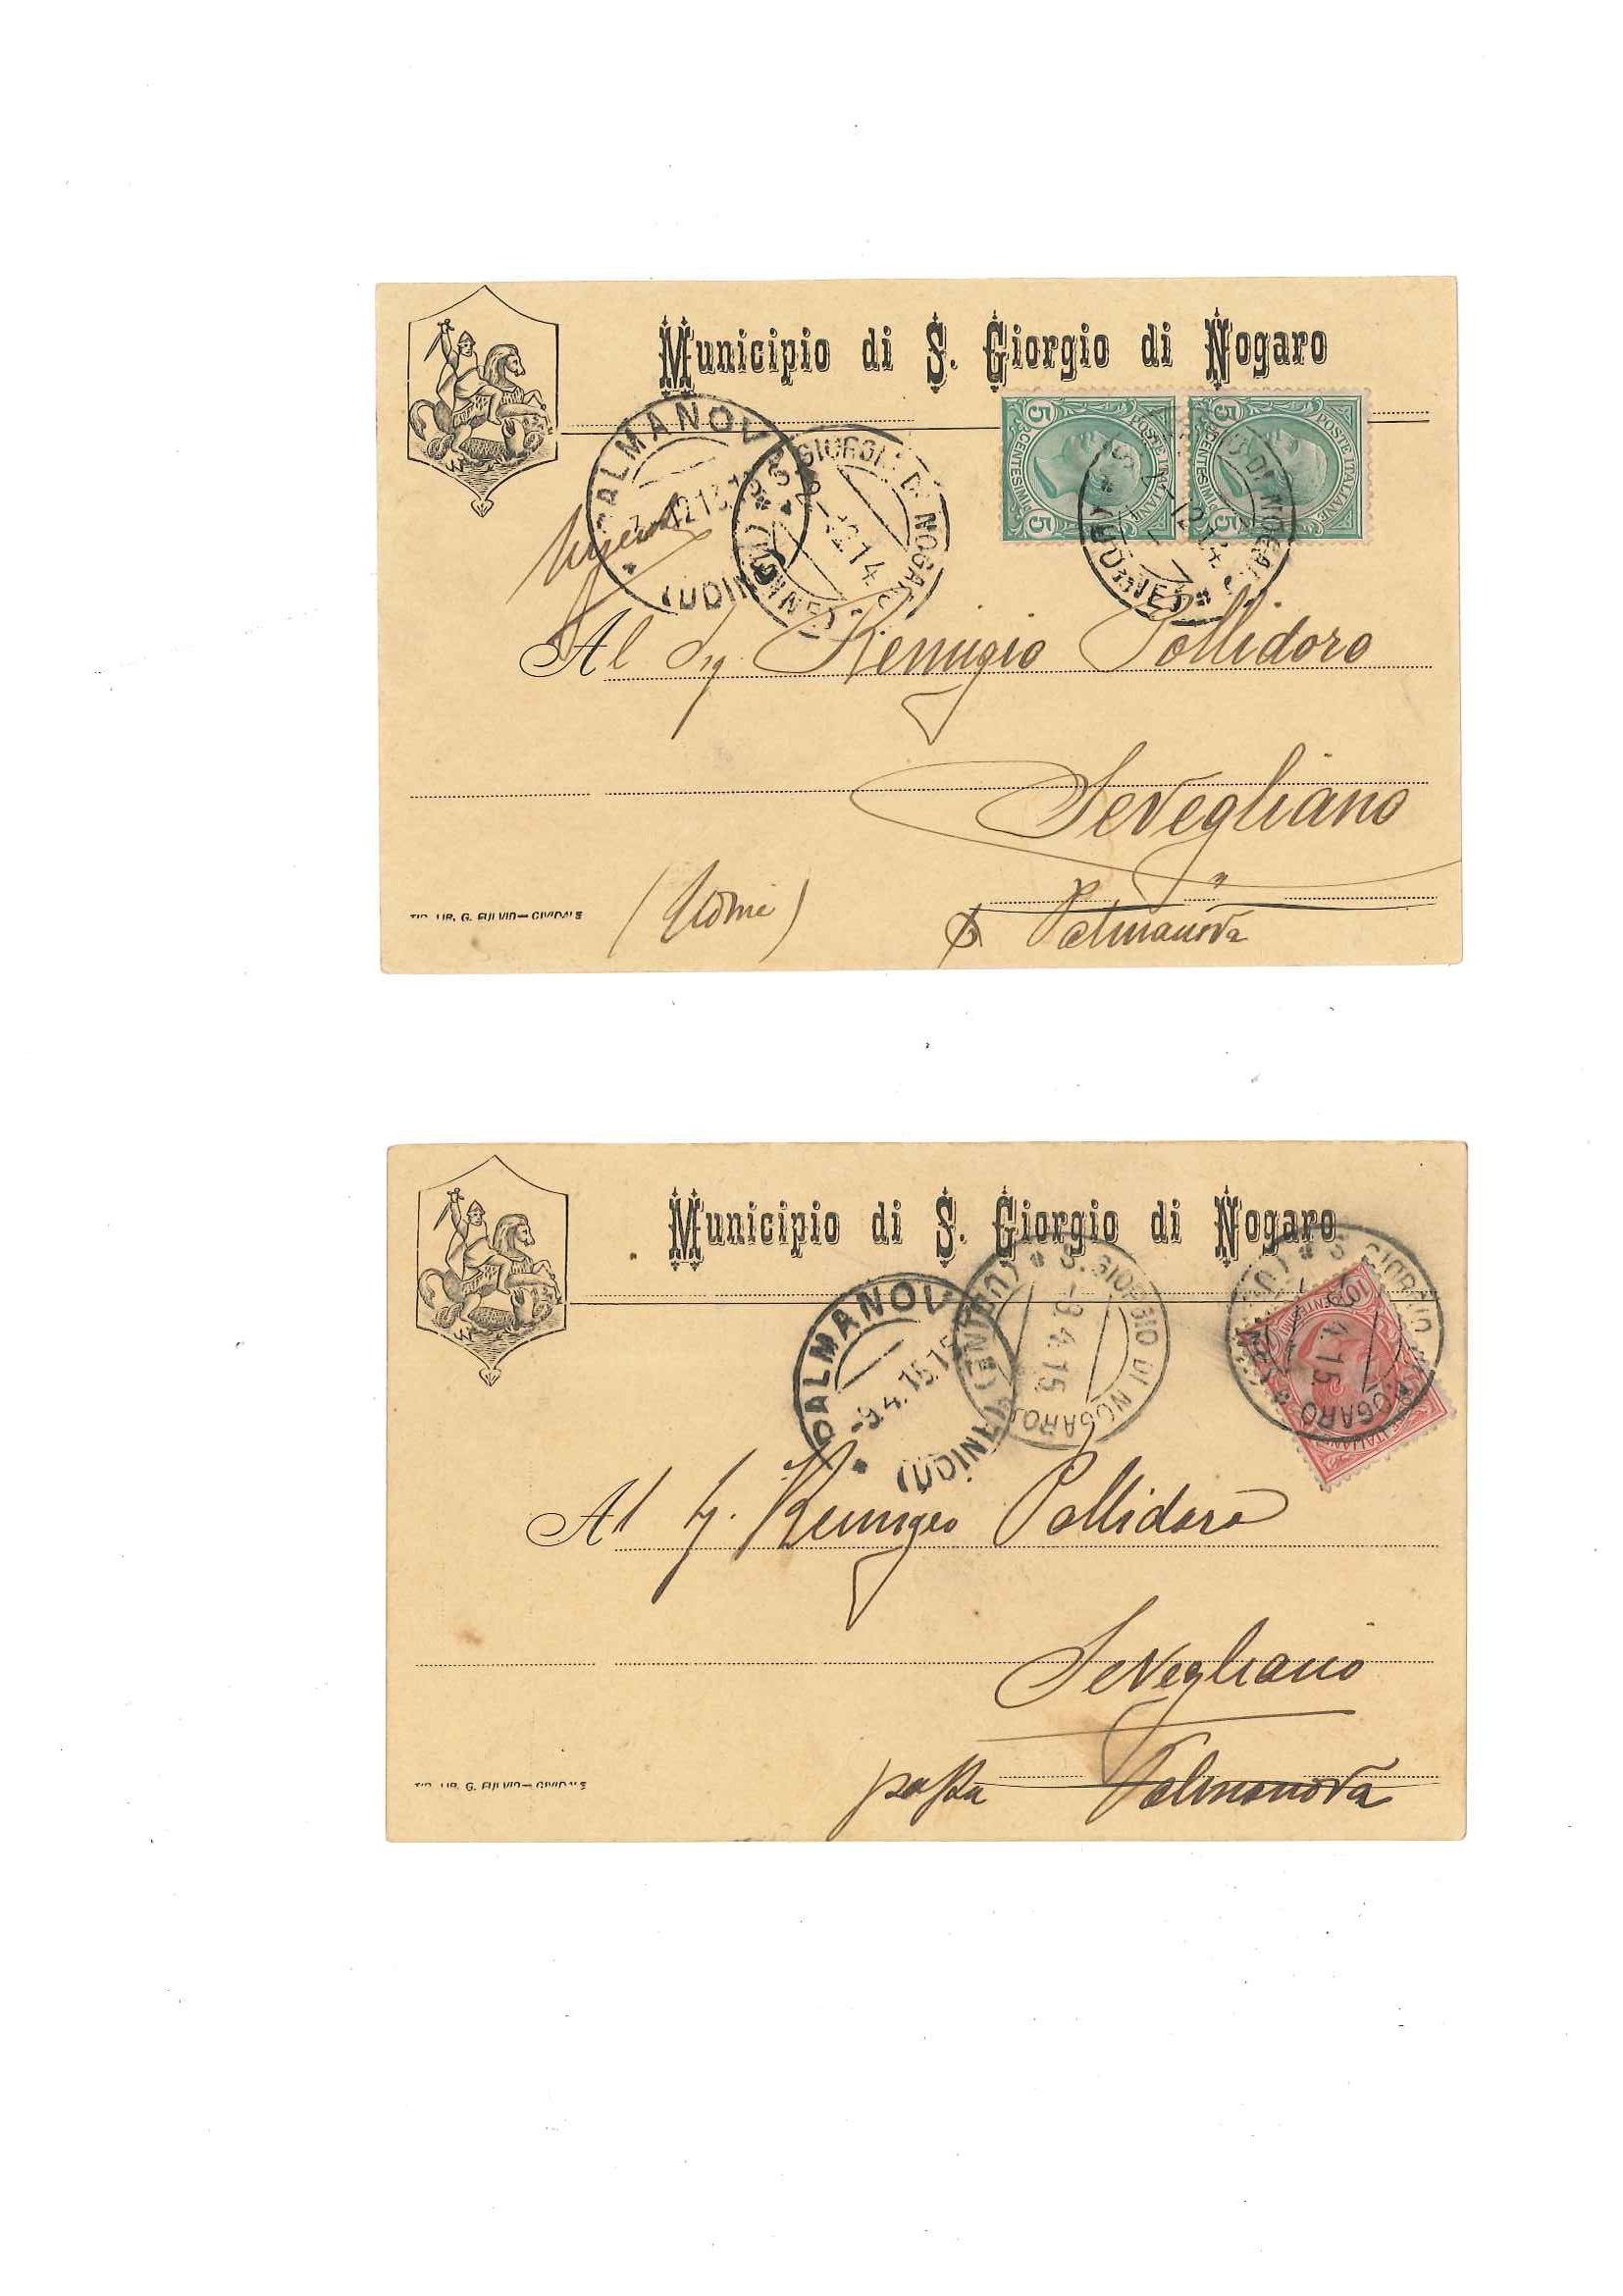 Municipio di S. Giorgio di Nogaro
5 CENTESIMI 5
POSTE ITALIANE
5 CENTESIMI 5
POSTE ITALIANE
PALMANOV
(UDINE)
S. GIORGIO DI NOGARO
(UDINE)
12.14
Al Sig. Remigio Pollidoro
Sevegliano
(Udine)
p Palmanova
TIP. LIB. G. FULVIO — CIVIDALE
Municipio di S. Giorgio di Nogaro
PALMANOV
-9.4.15.15
(UDINE)
S. GIORGIO DI NOGARO
(UDINE)
-9.4.15
S. GIORGIO DI NOGARO
4.15
10 CENTESIMI
POSTE ITALIANE
Al Sg. Remigio Pollidoro
Sevegliano
posta Palmanova
TIP. LIB. G. FULVIO — CIVIDALE